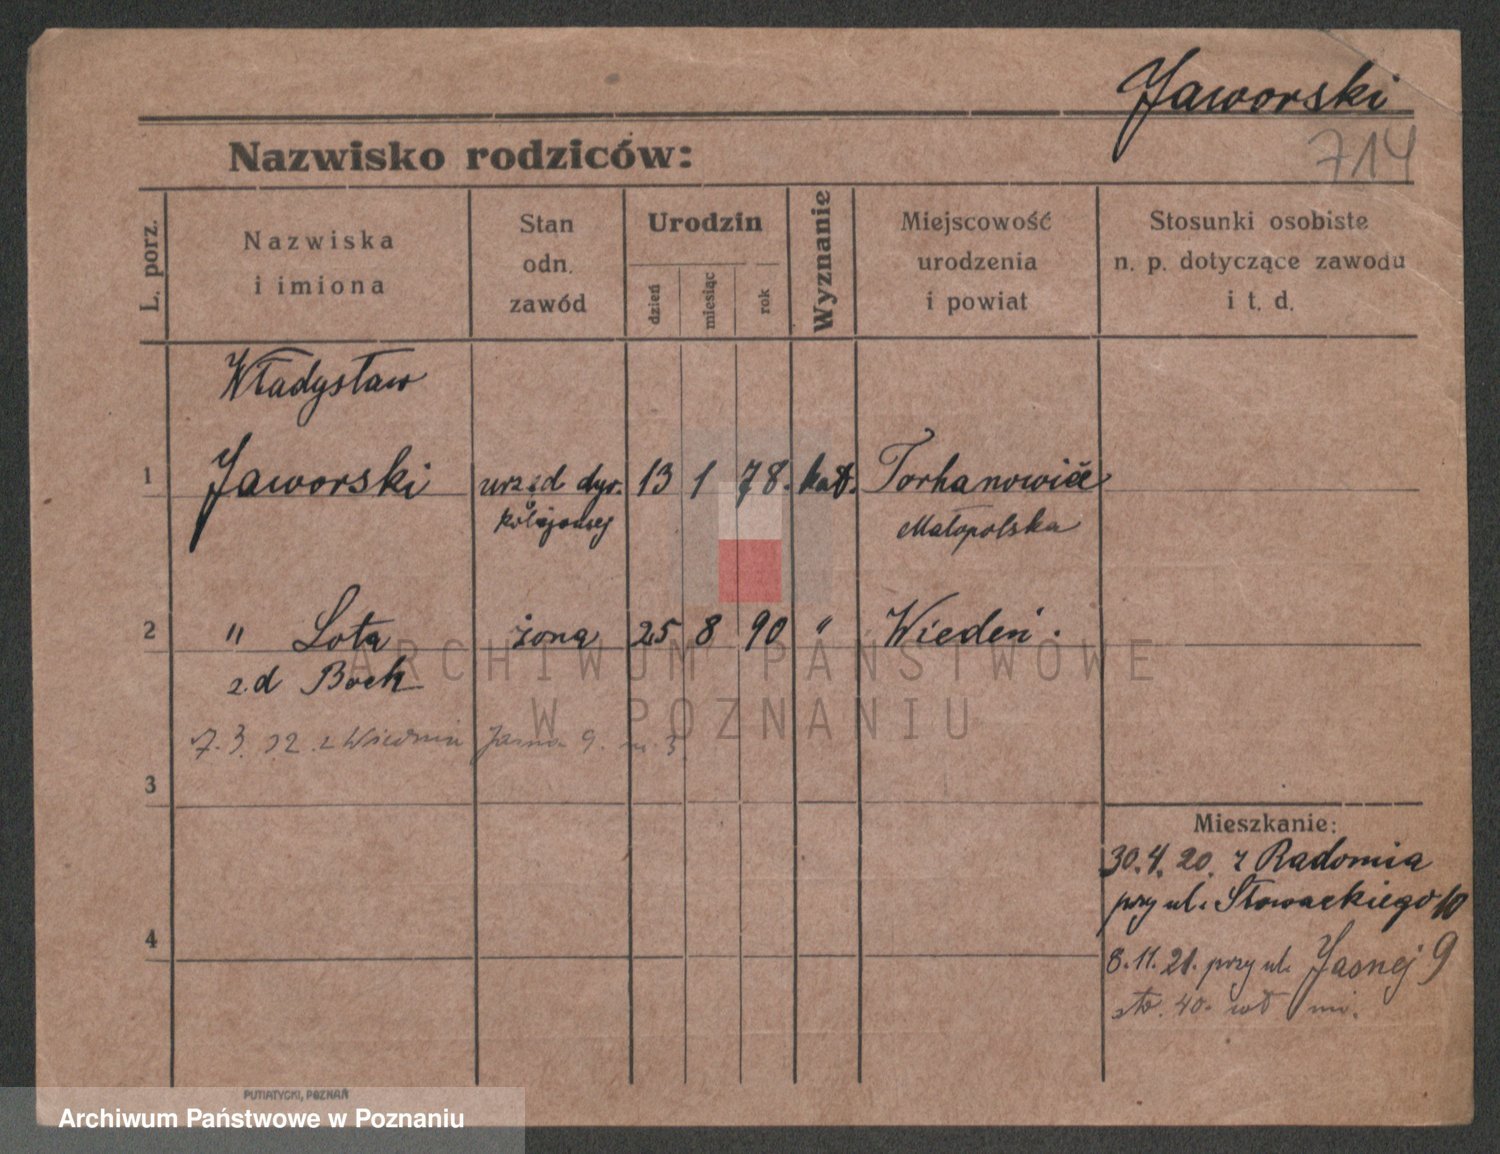 Jaworski
714
Nazwisko rodziców:
L. porz.
Nazwiska
i imiona
Stan
odn.
zawód
Urodzin
dzień
miesiąc
rok
Wyznanie
Miejscowość
urodzenia
i powiat
Stosunki osobiste
n. p. dotyczące zawodu
i t. d.
Władysław
1 Jaworski urzęd dyr. 13 1 78. kat. Torhanowice
kolejowej Małopolska
2 " Lota żona 25 8 90 " Wiedeń.
z.d Bock
7.3.32 z Wiednia Jasna 9. m 3
3
Mieszkanie:
30.4.20. z Radomia
przy ul. Słowackiego 10
4
8.11.21. przy ul. Jasnej 9
40.
PUTIATYCKI, POZNAŃ
ARCHIWUM PAŃSTWOWE
W POZNANIU
Archiwum Państwowe w Poznaniu